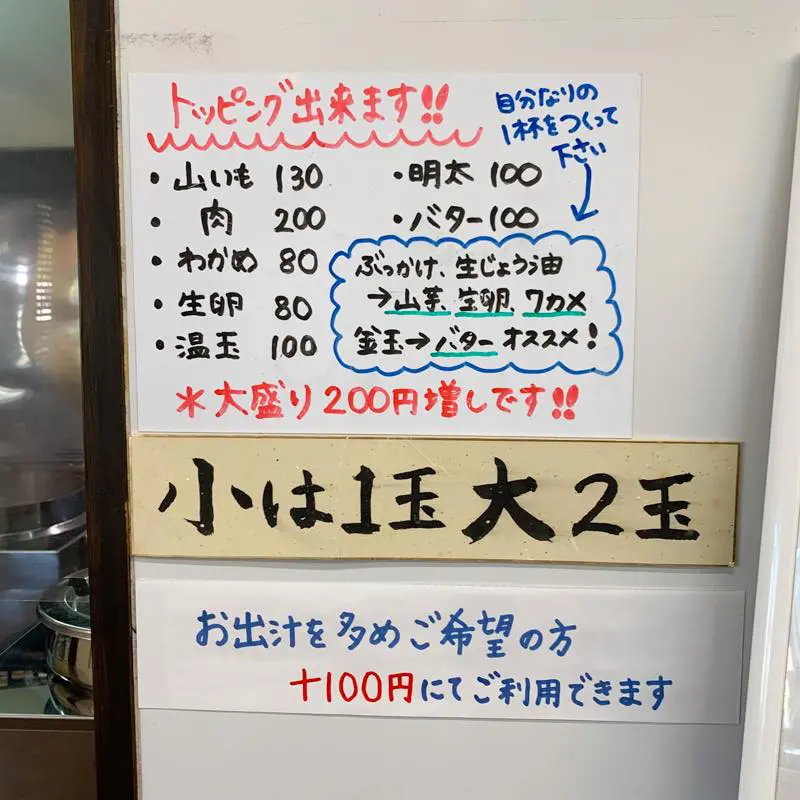 トッピング出来ます!!
自分なりの
1杯をつくって
下さい
・山いも 130
・肉 200
・わかめ 80
・生卵 80
・温玉 100
・明太 100
・バター 100
ぶっかけ、生じょうゆ油
→山芋、生卵、ワカメ
釜玉→バター オススメ!
＊大盛り200円増しです!!
小は1玉大2玉
お出汁を多めご希望の方
+100円にてご利用できます